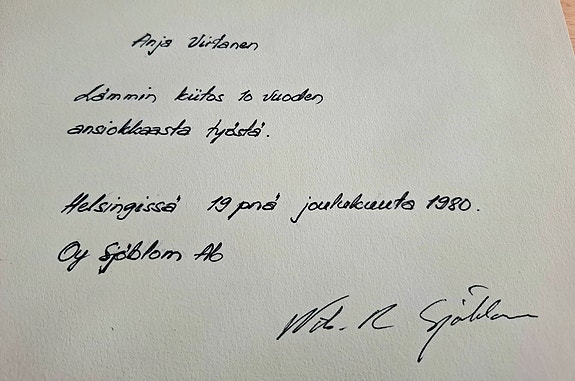 Anja Virtanen
Lämmin kiitos 10 vuoden
ansiokkaasta työstä.
Helsingissä 19 pnä joulukuuta 1980.
Oy Sjöblom Ab
R Sjöblom